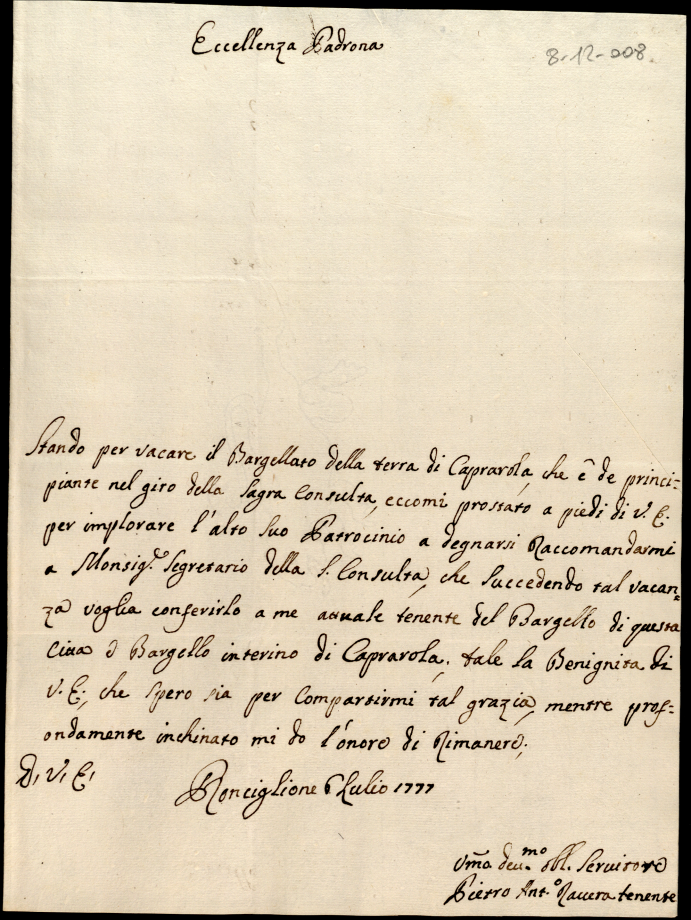 Eccellenza Padrona
8-12-008.
Stando per vacare il Bargellato della terra di Caprarola, che è de princi-
piante nel giro della Sagra Consulta, eccomi prostato a piedi di V. E.
per implorare l'alto suo Patrocinio a degnarsi Raccomandarmi
a Monsig.r Segretario della S. Consulta, che succedendo tal vacan-
za voglia conferirlo a me attuale tenente del Bargello di questa
Citta e Bargello interino di Caprarola. tale la Benignita di
V. E., che spero sia per compartirmi tal grazia, mentre prof-
ondamente inchinato mi do l'onore di Rimanere;
D. V. E.
Ronciglione 6 Lulio 1777
Vmo dev.mo obl. Servitore
Pietro Ant.o tenente